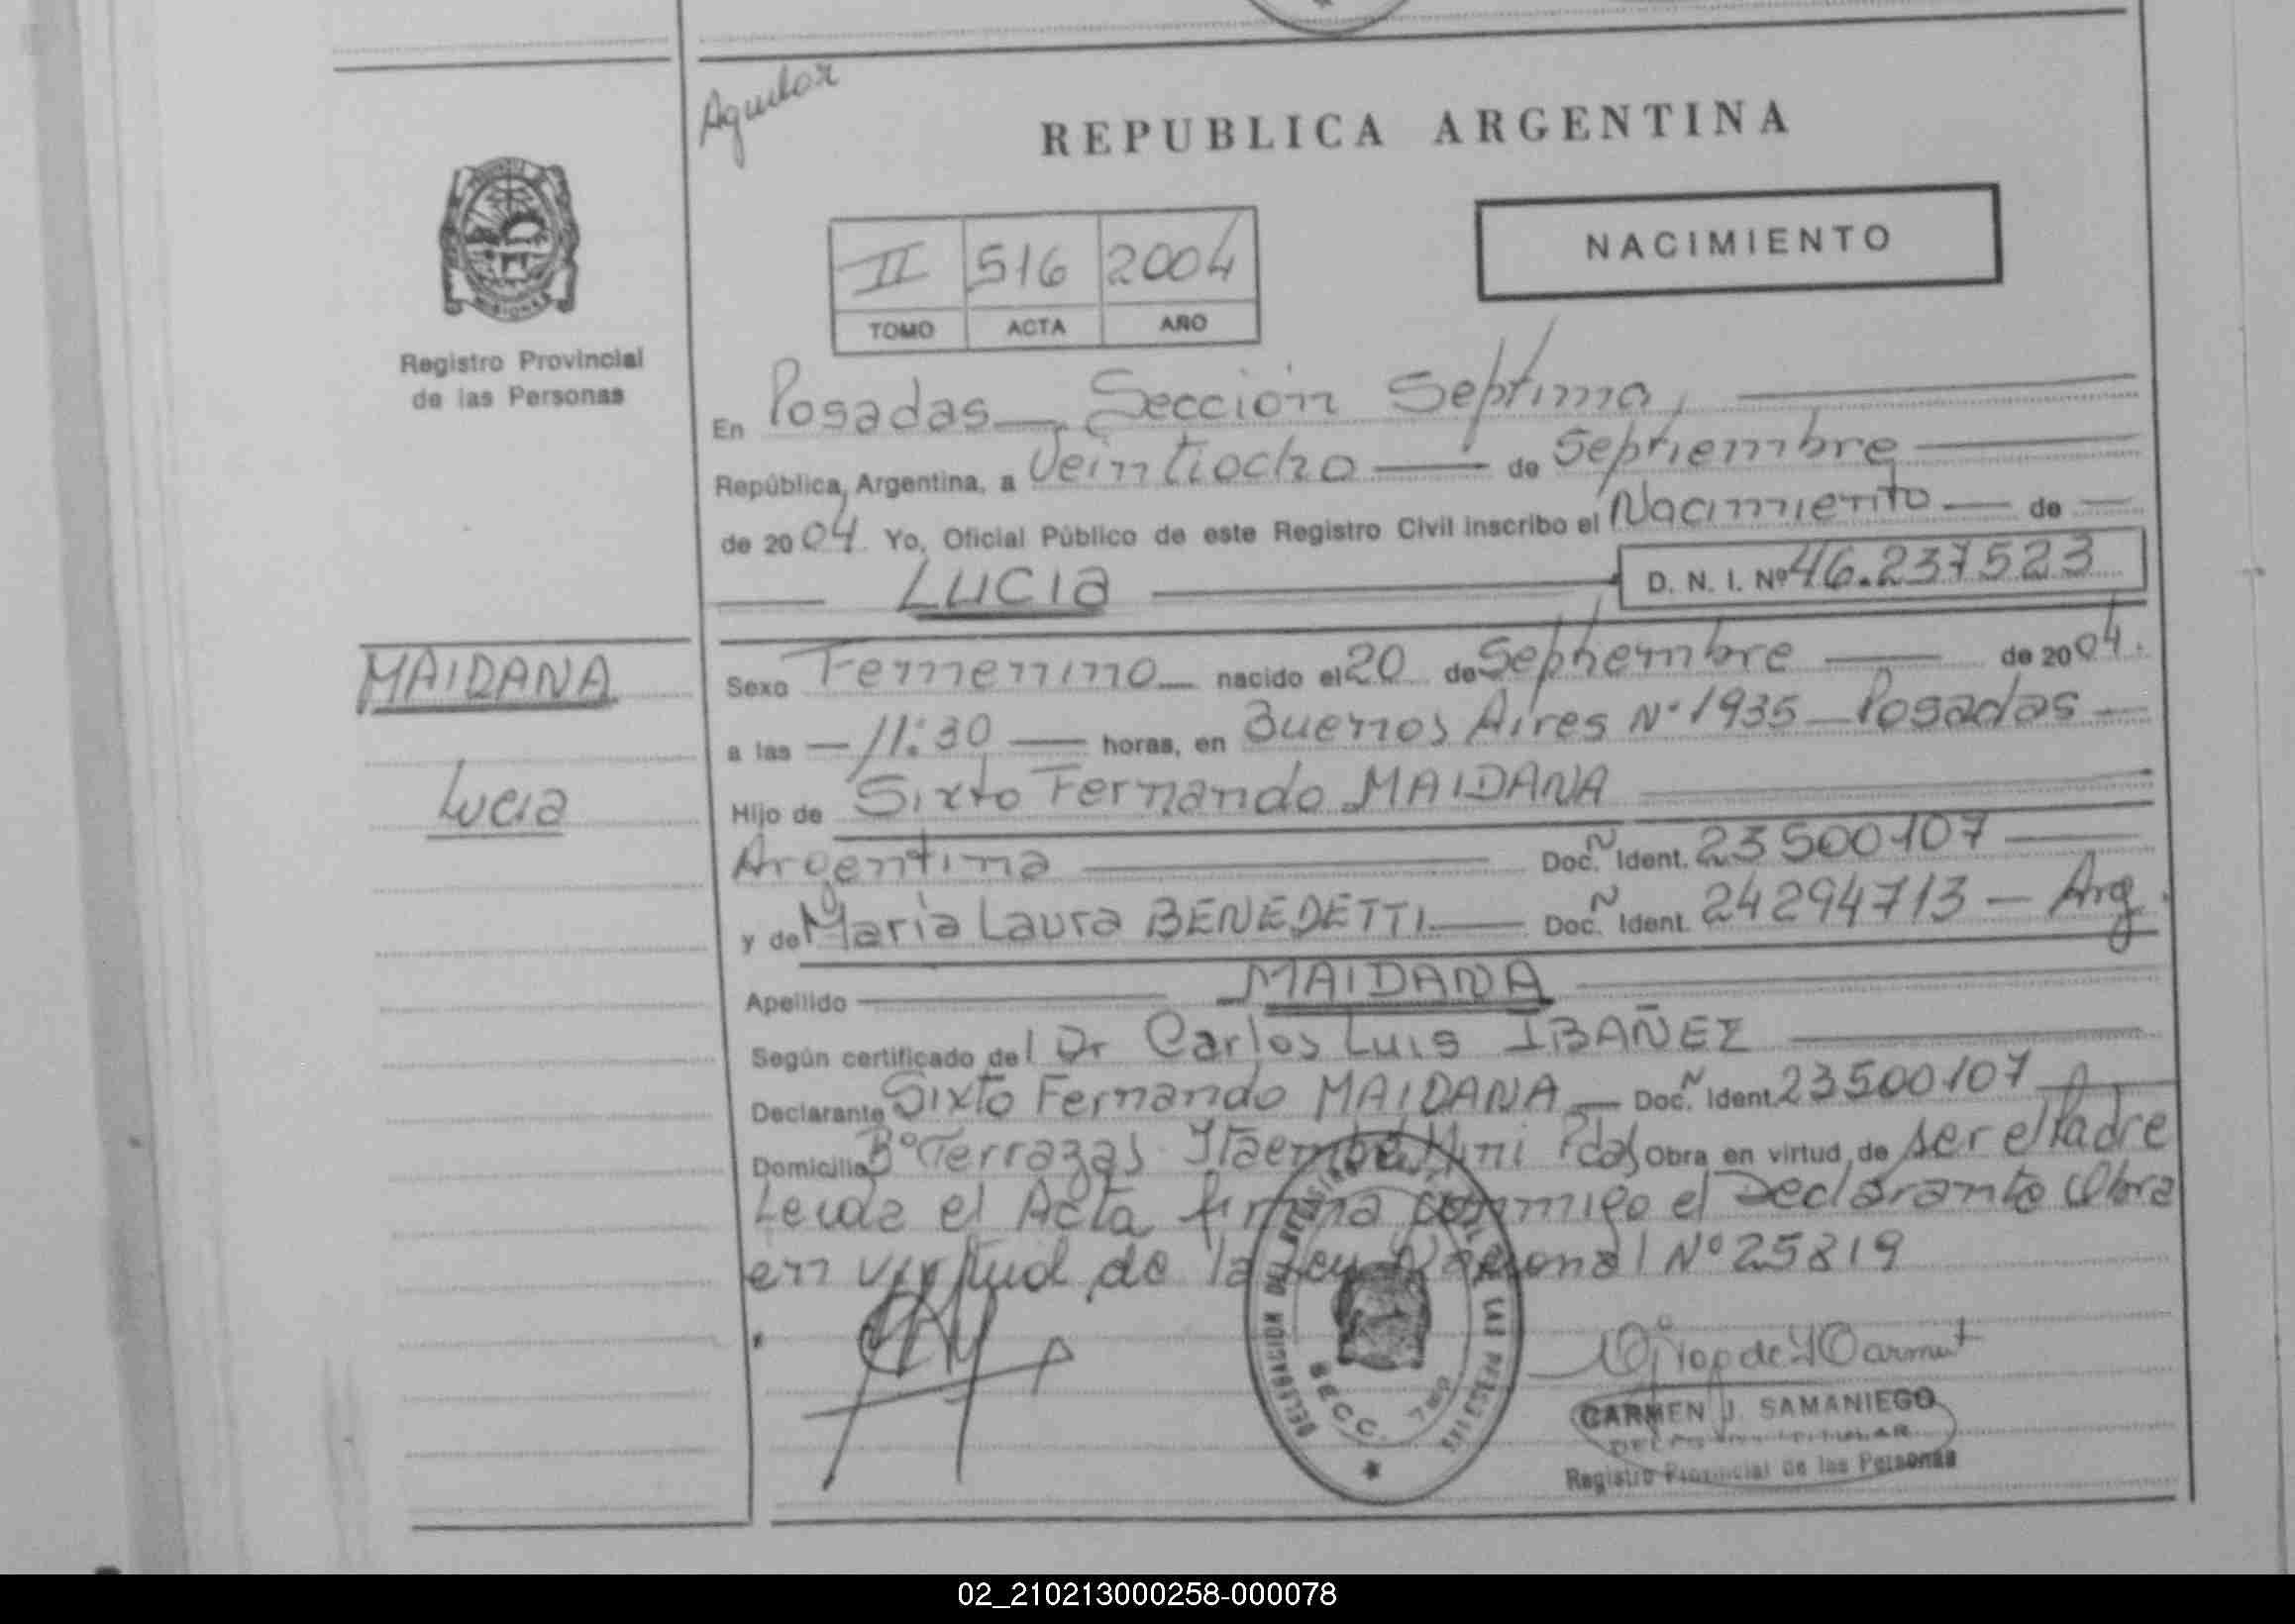 Aguilar
REPUBLICA ARGENTINA
NACIMIENTO
II 516 2004
TOMO ACTA AÑO
Registro Provincial
de las Personas
En Posadas — Sección Septima,
República Argentina, a Veintiocho — de Septiembre
de 2004 Yo, Oficial Público de este Registro Civil inscribo el Nacimiento — de —
LUCIA D. N. I. Nº 46.237523
MAIDANA
Lucia
Sexo Femenino — nacido el 20 de Septiembre — de 2004.
a las — 11:30 — horas, en Buenos Aires Nº 1935 — Posadas —
Hijo de Sixto Fernando MAIDANA
Argentina — Doc. Ñ Ident. 23500107 —
y de María Laura BENEDETTI — Doc. Ñ Ident. 24294713 — Arg.
Apellido — MAIDANA
Según certificado del Dr Carlos Luis IBAÑEZ
Declarante Sixto Fernando MAIDANA — Doc. Ñ Ident. 23500107
Domicilio Bº Terrazas Itaembé Mini Pdas Obra en virtud de ser el Padre
Leida el Acta firma conmigo el Declarante Obra
en virtud de la Ley Nacional Nº 25819
DELEGACION DEL REGISTRO DE LAS PERSONAS
SECC. 7ma
CARMEN J. SAMANIEGO
Registro Provincial de las Personas
02_210213000258-000078